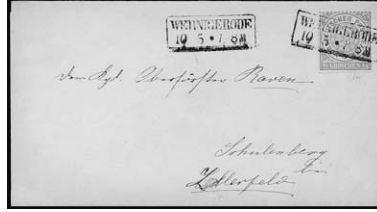 WERNIGERODE
10 5 * 7 8 M
WERNIGERODE
10 5 * 7 8 M
Oberförster Raven
Schulenberg
bei
Zellerfeld